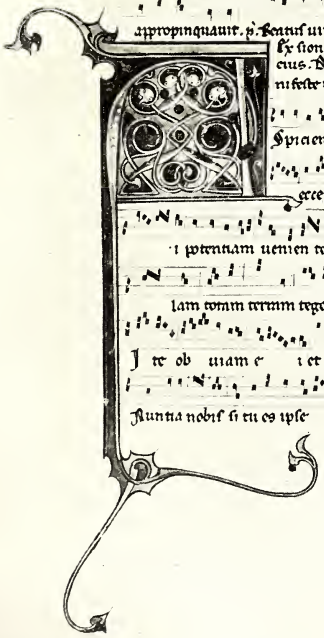 appropinquavit. p̃. Beatus vir
Ex sion
eius.
nifeste
Aspiciens
ecce
i potentiam uenien te
lam totam terram tege
I te ob uiam e i et
Nuntia nobis si tu es ipse